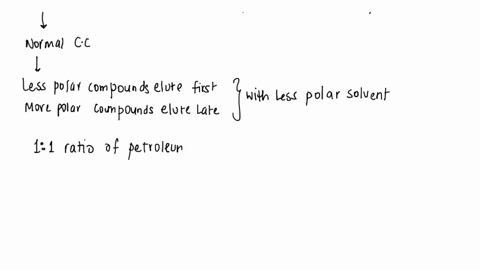 Normal C.C
Less polar compounds elute first
More polar compounds elute late
with less polar solvent
1:1 ratio of petroleum